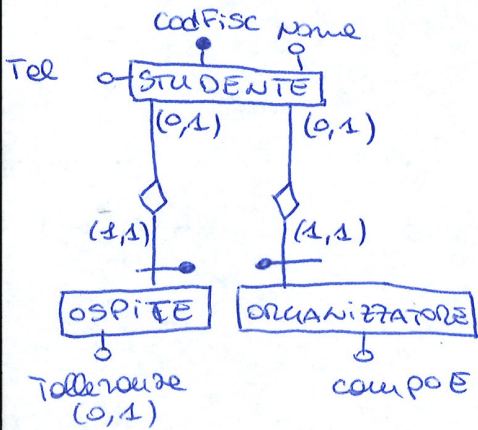 CodFisc Nome
Tel
STUDENTE
(0,1) (0,1)
(1,1) (1,1)
OSPITE ORGANIZZATORE
Tolleranze campoE
(0,1)